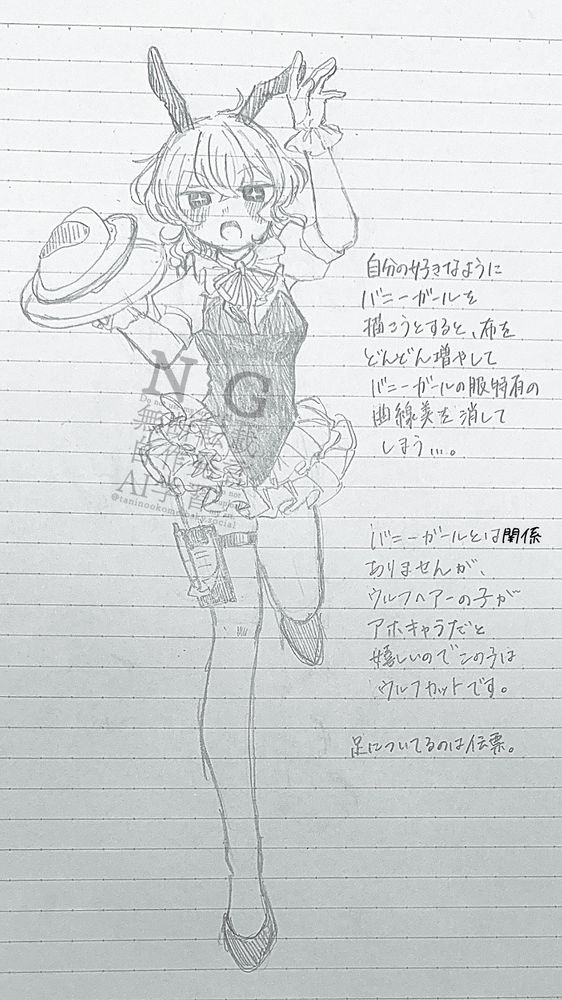 自分の好きなように
バニーガールを
描こうとすると、布を
どんどん増やして
バニーガールの服特有の
曲線美を消して
しまう…。
バニーガールとは関係
ありませんが、
ウルフヘアーの子が
アホキャラだと
嬉しいのでこの子は
ウルフカットです。
足についてるのは伝票。
NG
無断転載
自作発言
AI学習